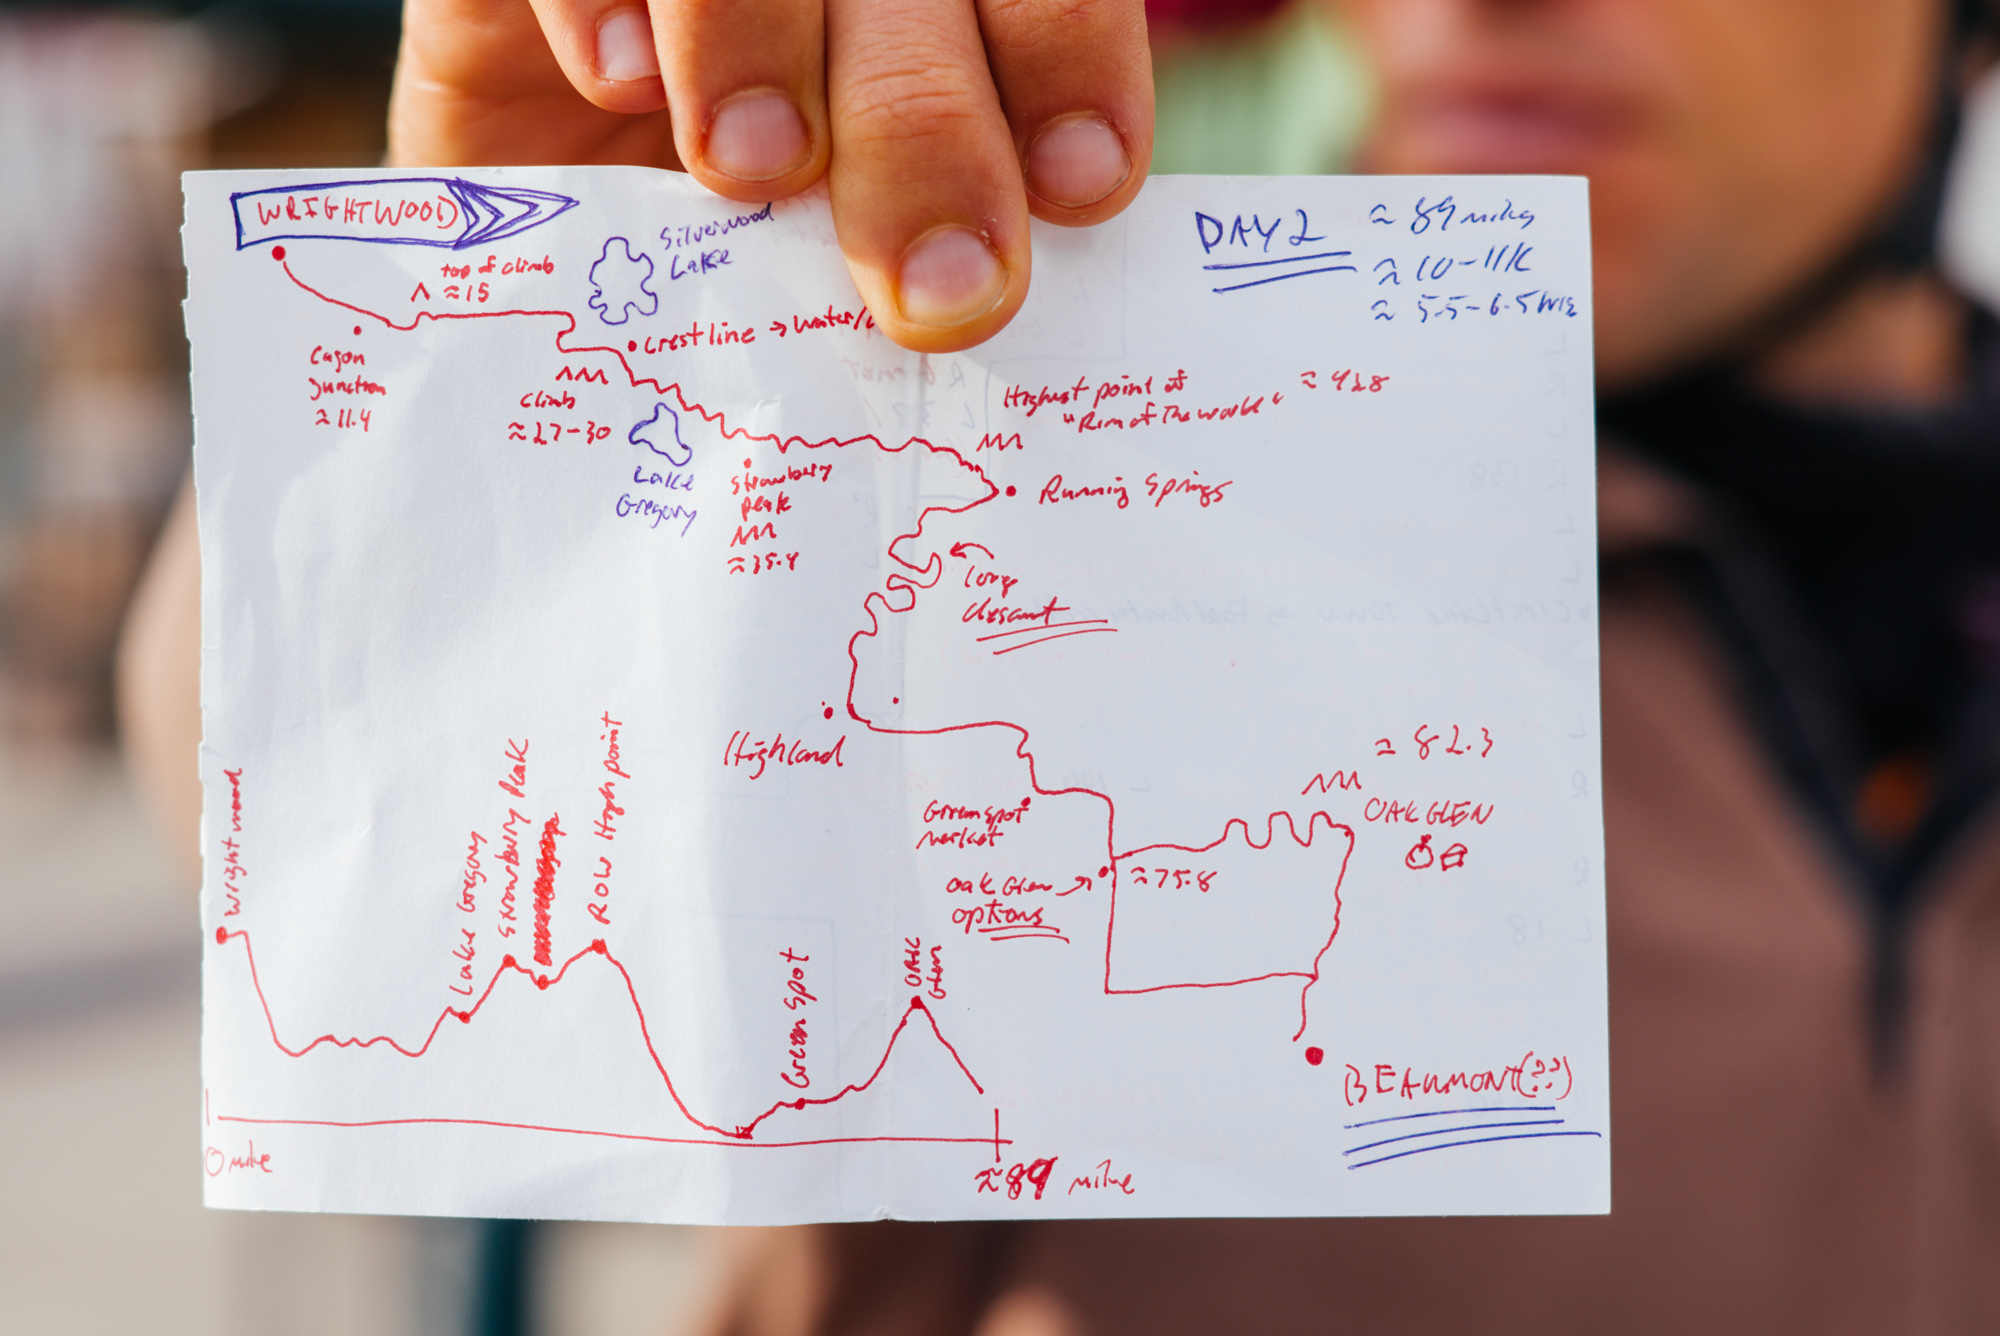 WRIGHTWOOD
DAY 2
≈ 89 miles
≈ 10-11K
≈ 5.5-6.5 hrs
top of climb
≈ 15
Silverwood
Lake
Cajon
Junction
≈ 11.4
Crestline → Water/
climb
≈ 27-30
Lake
Gregory
Highest point of
"Rim of The World"
Running Springs
Strawberry
peak
≈ 35.8
long
descent
Highland
Greenspot
market
Oak Glen
options
≈ 75.8
≈ 82.3
OAK GLEN
BEAUMONT(??)
Wrightwood
Lake Gregory
Strawberry Peak
ROW High point
Greenspot
OAK
Glen
0 mile
≈ 89 mile